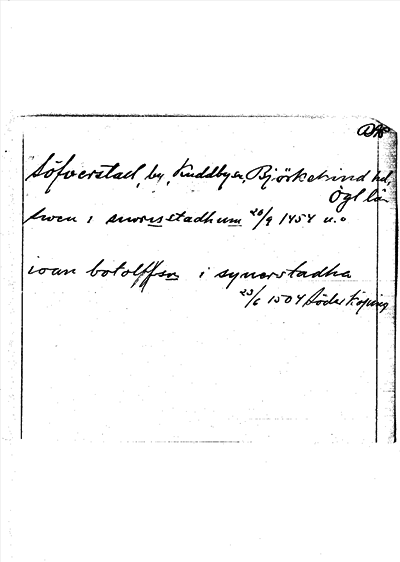 DMS
Söfverstad, by, Kuddby sn, Björkekind hd,
Ögl län
swen i snoresstadhum 20/9 1454 u.o
ioan botolffson i synerstadha
23/6 1504 Söderköping